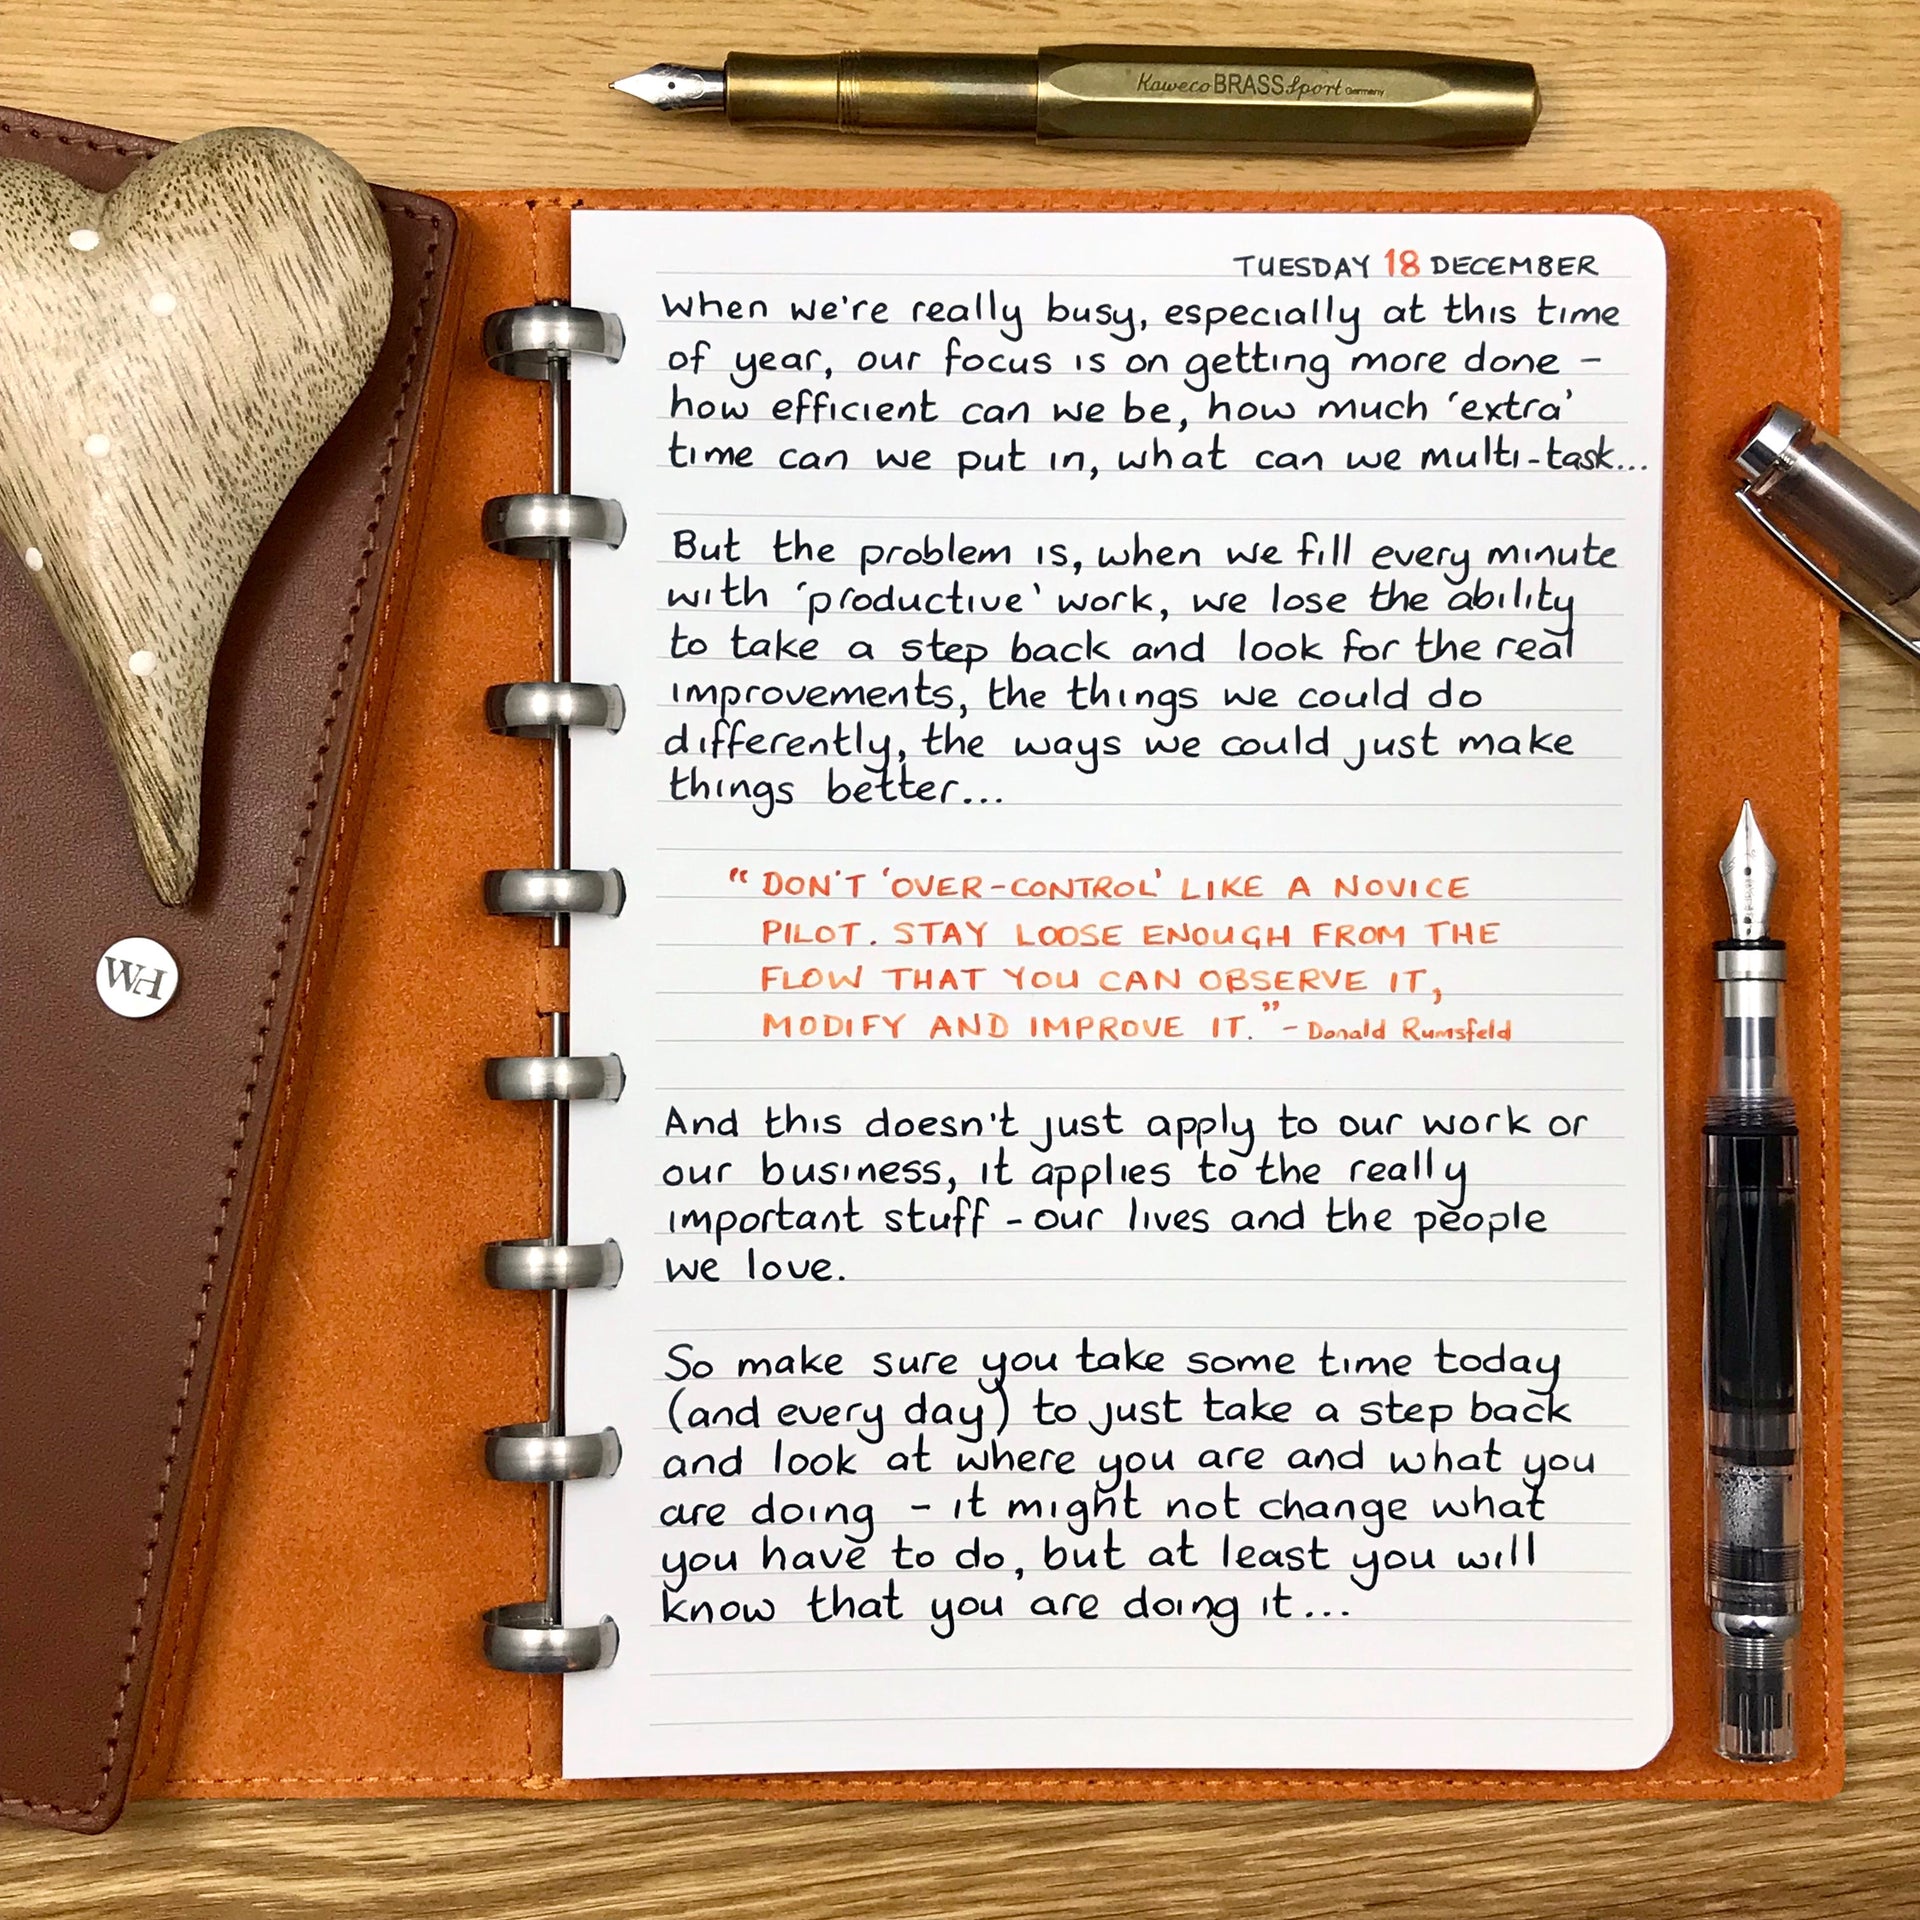 Kaweco BRASS Sport Germany
TUESDAY 18 DECEMBER
When we're really busy, especially at this time
of year, our focus is on getting more done -
how efficient can we be, how much 'extra'
time can we put in, what can we multi-task...
But the problem is, when we fill every minute
with 'productive' work, we lose the ability
to take a step back and look for the real
improvements, the things we could do
differently, the ways we could just make
things better...
"DON'T 'OVER-CONTROL' LIKE A NOVICE
PILOT. STAY LOOSE ENOUGH FROM THE
FLOW THAT YOU CAN OBSERVE IT,
MODIFY AND IMPROVE IT." - Donald Rumsfeld
WH
And this doesn't just apply to our work or
our business, it applies to the really
important stuff - our lives and the people
we love.
So make sure you take some time today
(and every day) to just take a step back
and look at where you are and what you
are doing - it might not change what
you have to do, but at least you will
know that you are doing it...